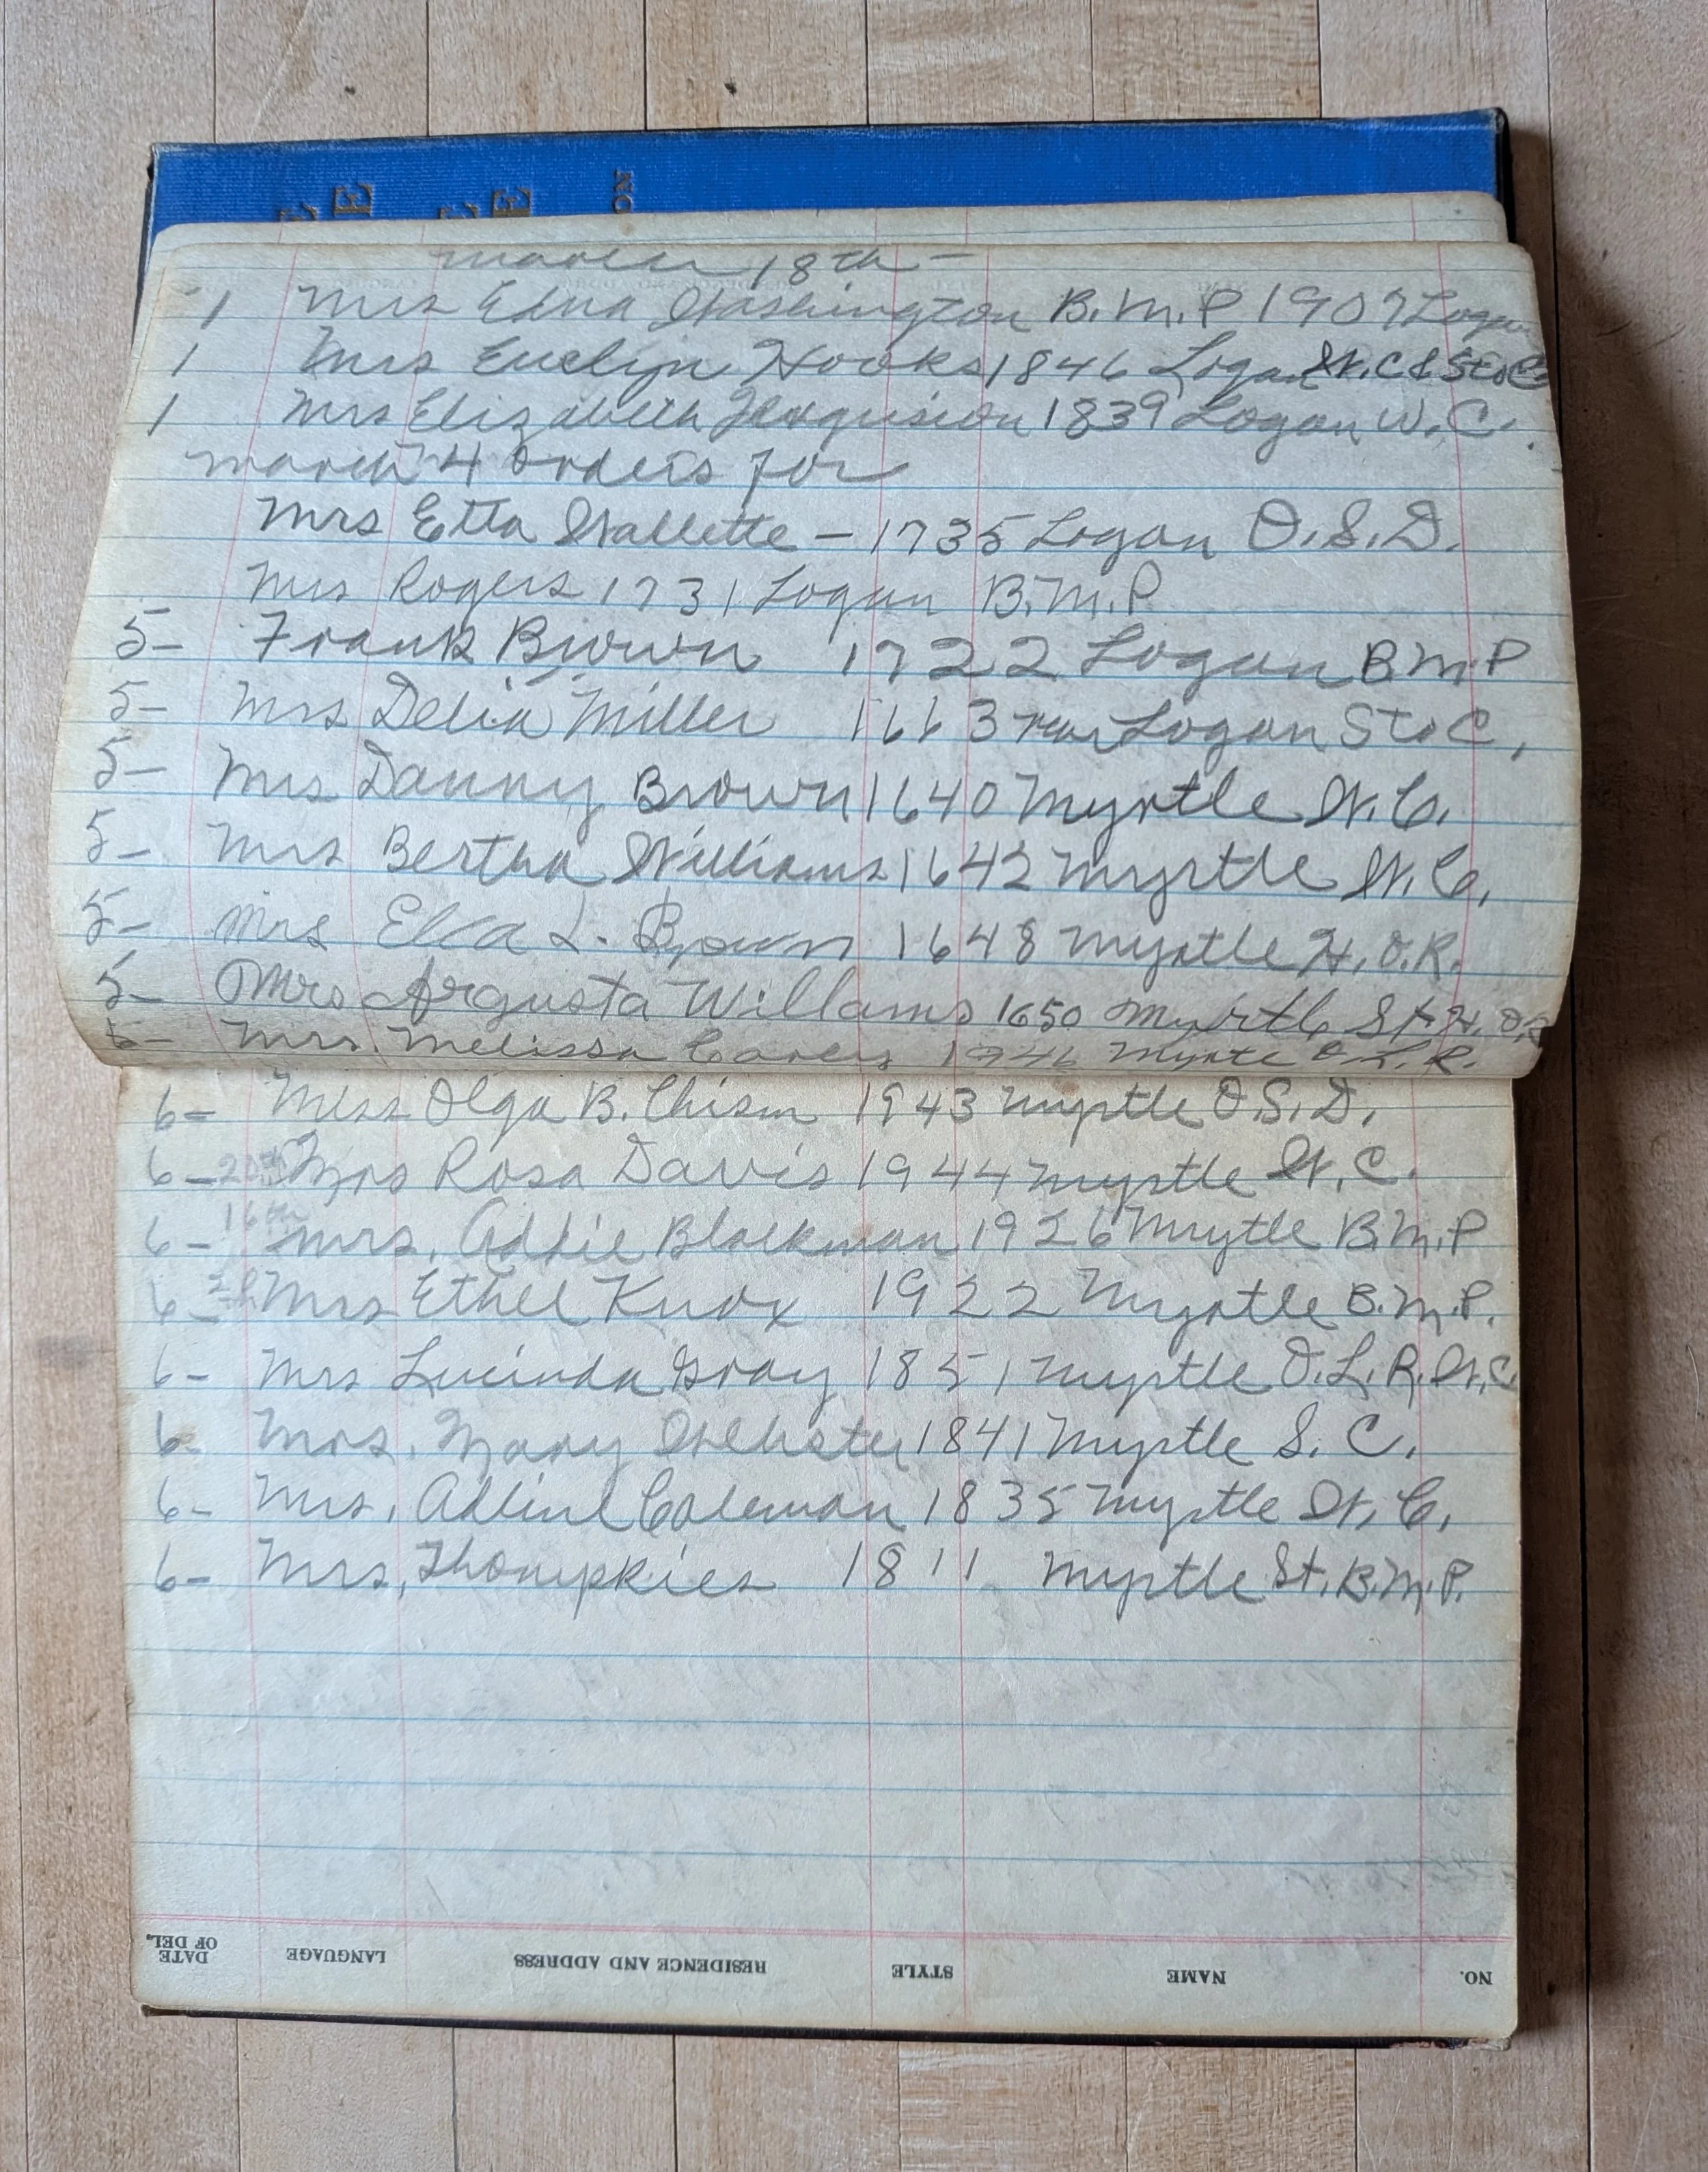 March 18th -
1 Mrs Edna Washington B.M.P 1907 Logan
1 Mrs Evelyn Hooks 1846 Logan W.C & St.C
1 Mrs Elizabeth 1839 Logan W.C.
March 4 Orders for
Mrs Etta Wallette - 1735 Logan O.S.D.
Mrs Rogers 1731 Logan B.M.P
5- Frank Brown 1722 Logan B M.P
5- Mrs Delia Miller 1663 rear Logan St.C,
5- Mrs Danny Brown 1640 Myrtle W.C.
5- Mrs Bertha Williams 1642 Myrtle W.C.
5- Mrs L. Brown 1648 Myrtle H.O.R.
5- Mrs Argusta Willams 1650 Myrtle St H.O.R
5- Mrs. Melissa 1946 L.R.
6- Miss Olga B. Chism 1943 Myrtle O.S.D.
6- Mrs Rosa Davis 1944 Myrtle W.C.
16th
6- Mrs. Addie Blackman 1926 Mrytle B.M.P
6- Mrs Ethel Knox 1922 Myrtle B.M.P.
6- Mrs Lucinda Gray 1851 Myrtle O.L.R. W.C
6- Mrs. Mary Webster 1841 Myrtle S.C.
6- Mrs. Adline Coleman 1835 Myrtle W.C.
6- Mrs. Thompkies 1811 Myrtle St. B.M.P.
DATE OF DEL. LANGUAGE RESIDENCE AND ADDRESS STYLE NAME NO.